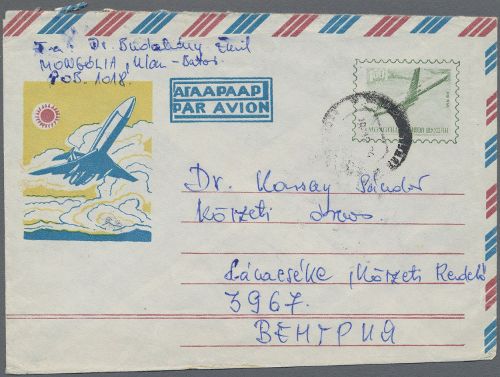 Dr. Budaházy Emil
MONGÓLIA, Ulan-Bator
POB. 1018.
АГААРААР
PAR AVION
Dr. Kassay Sándor
Körzeti orvos
Lácacséke, Körzeti Rendelő
3967.
ВЕНГРИЯ